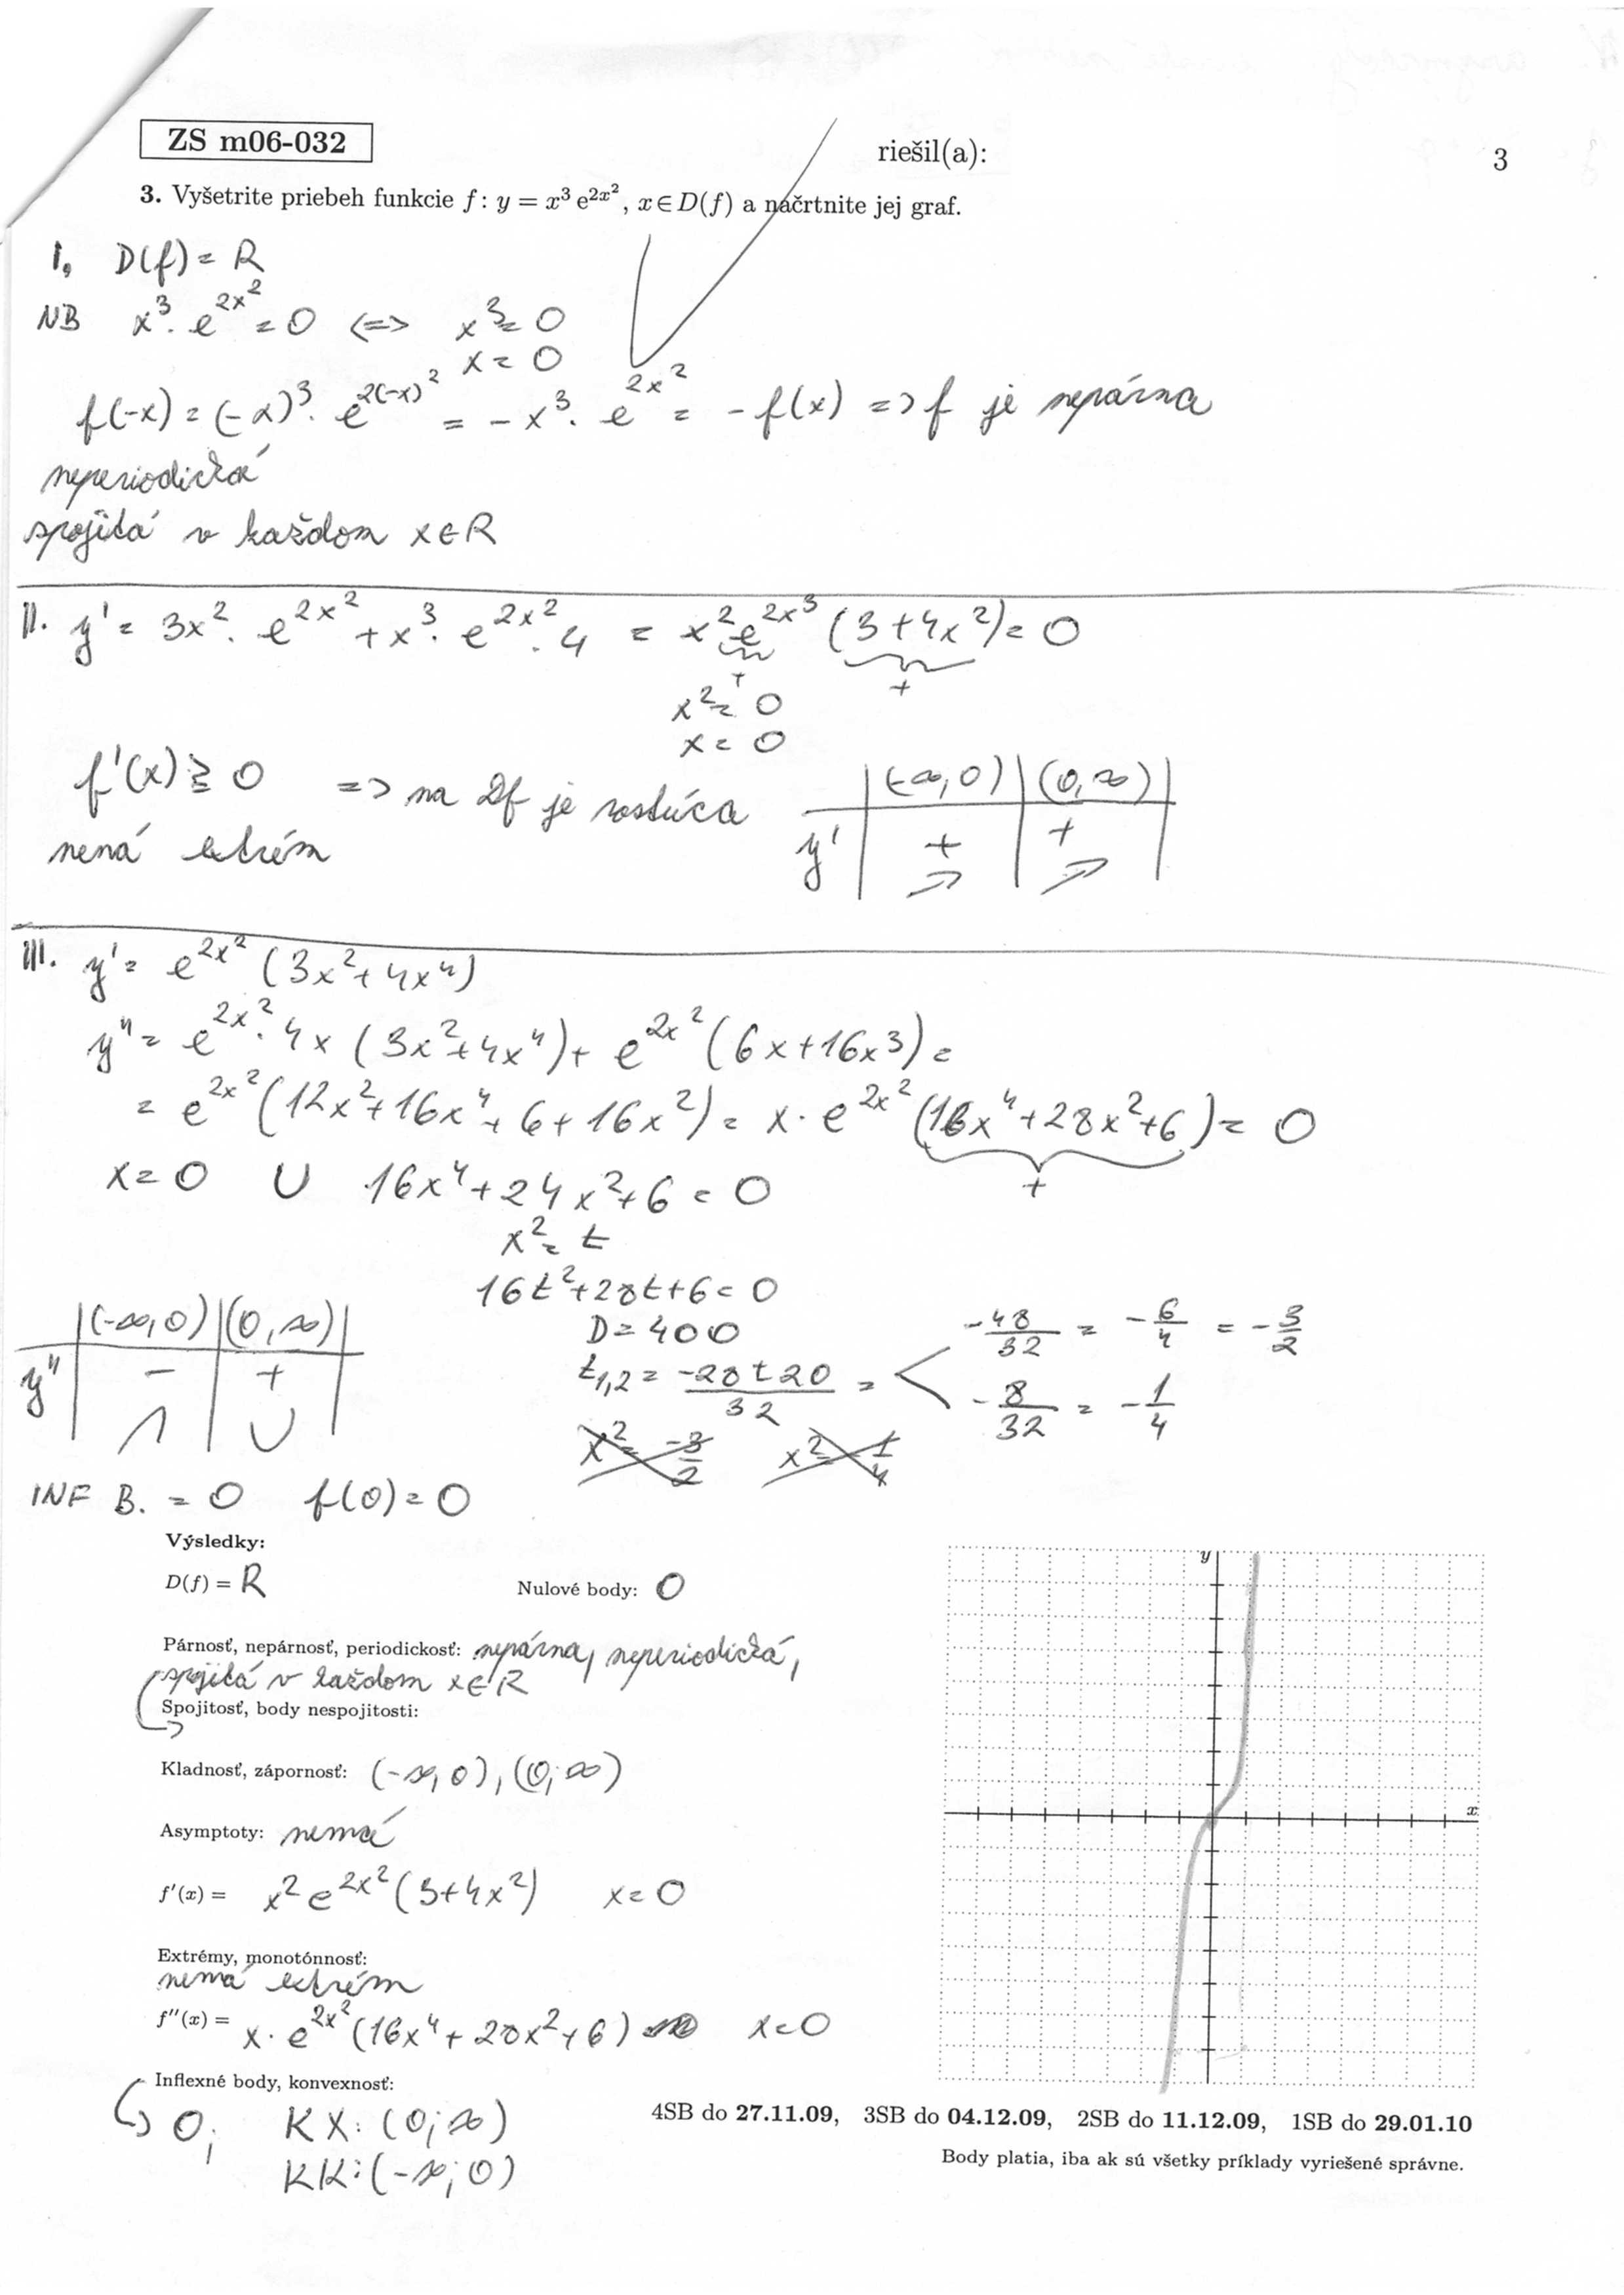 ZS m06-032 riešil(a): 3
3. Vyšetrite priebeh funkcie f: y = x³ e^{2x²}, x ∈ D(f) a náčrtnite jej graf.
I, D(f) = R
NB x³ · e^{2x²} = 0 <=> x³ = 0
x = 0
f(-x) = (-x)³ · e^{2(-x)²} = -x³ · e^{2x²} = -f(x) => f je nepárna
neperiodická
spojitá v každom x∈R
II. y' = 3x² · e^{2x²} + x³ · e^{2x²} · 4 = x² e^{2x³} (3+4x²) = 0
+ +
x² = 0
x = 0
f'(x) ≥ 0 => na Df je rastúca
nená extrém
(-∞,0) (0,∞)
y' + +
III. y' = e^{2x²} (3x²+4x⁴)
y'' = e^{2x²} · 4x (3x²+4x⁴) + e^{2x²} (6x+16x³) =
= e^{2x²} (12x²+16x⁴+6+16x²) = x · e^{2x²} (16x⁴+28x²+6) = 0
+
x = 0 ∪ 16x⁴+24x²+6 = 0
x² = t
16t²+28t+6 = 0
D = 400
t₁,₂ = (-28±20)/32 = < -48/32 = -6/4 = -3/2
-8/32 = -1/4
x² = -3/2 x² = -1/4
(-∞,0) (0,∞)
y'' - +
∩ ∪
INF B. = 0 f(0) = 0
Výsledky:
D(f) = R Nulové body: 0
Párnosť, nepárnosť, periodickosť: nepárna, neperiodická,
spojitá v každom x∈R
Spojitosť, body nespojitosti:
Kladnosť, zápornosť: (-∞,0), (0;∞)
Asymptoty: nemá
f'(x) = x² e^{2x²} (3+4x²) x = 0
Extrémy, monotónnosť:
nemá extrém
f''(x) = x · e^{2x²} (16x⁴+28x²+6) x = 0
Inflexné body, konvexnosť:
0; KX: (0;∞)
KK: (-∞;0)
y
x
4SB do 27.11.09, 3SB do 04.12.09, 2SB do 11.12.09, 1SB do 29.01.10
Body platia, iba ak sú všetky príklady vyriešené správne.